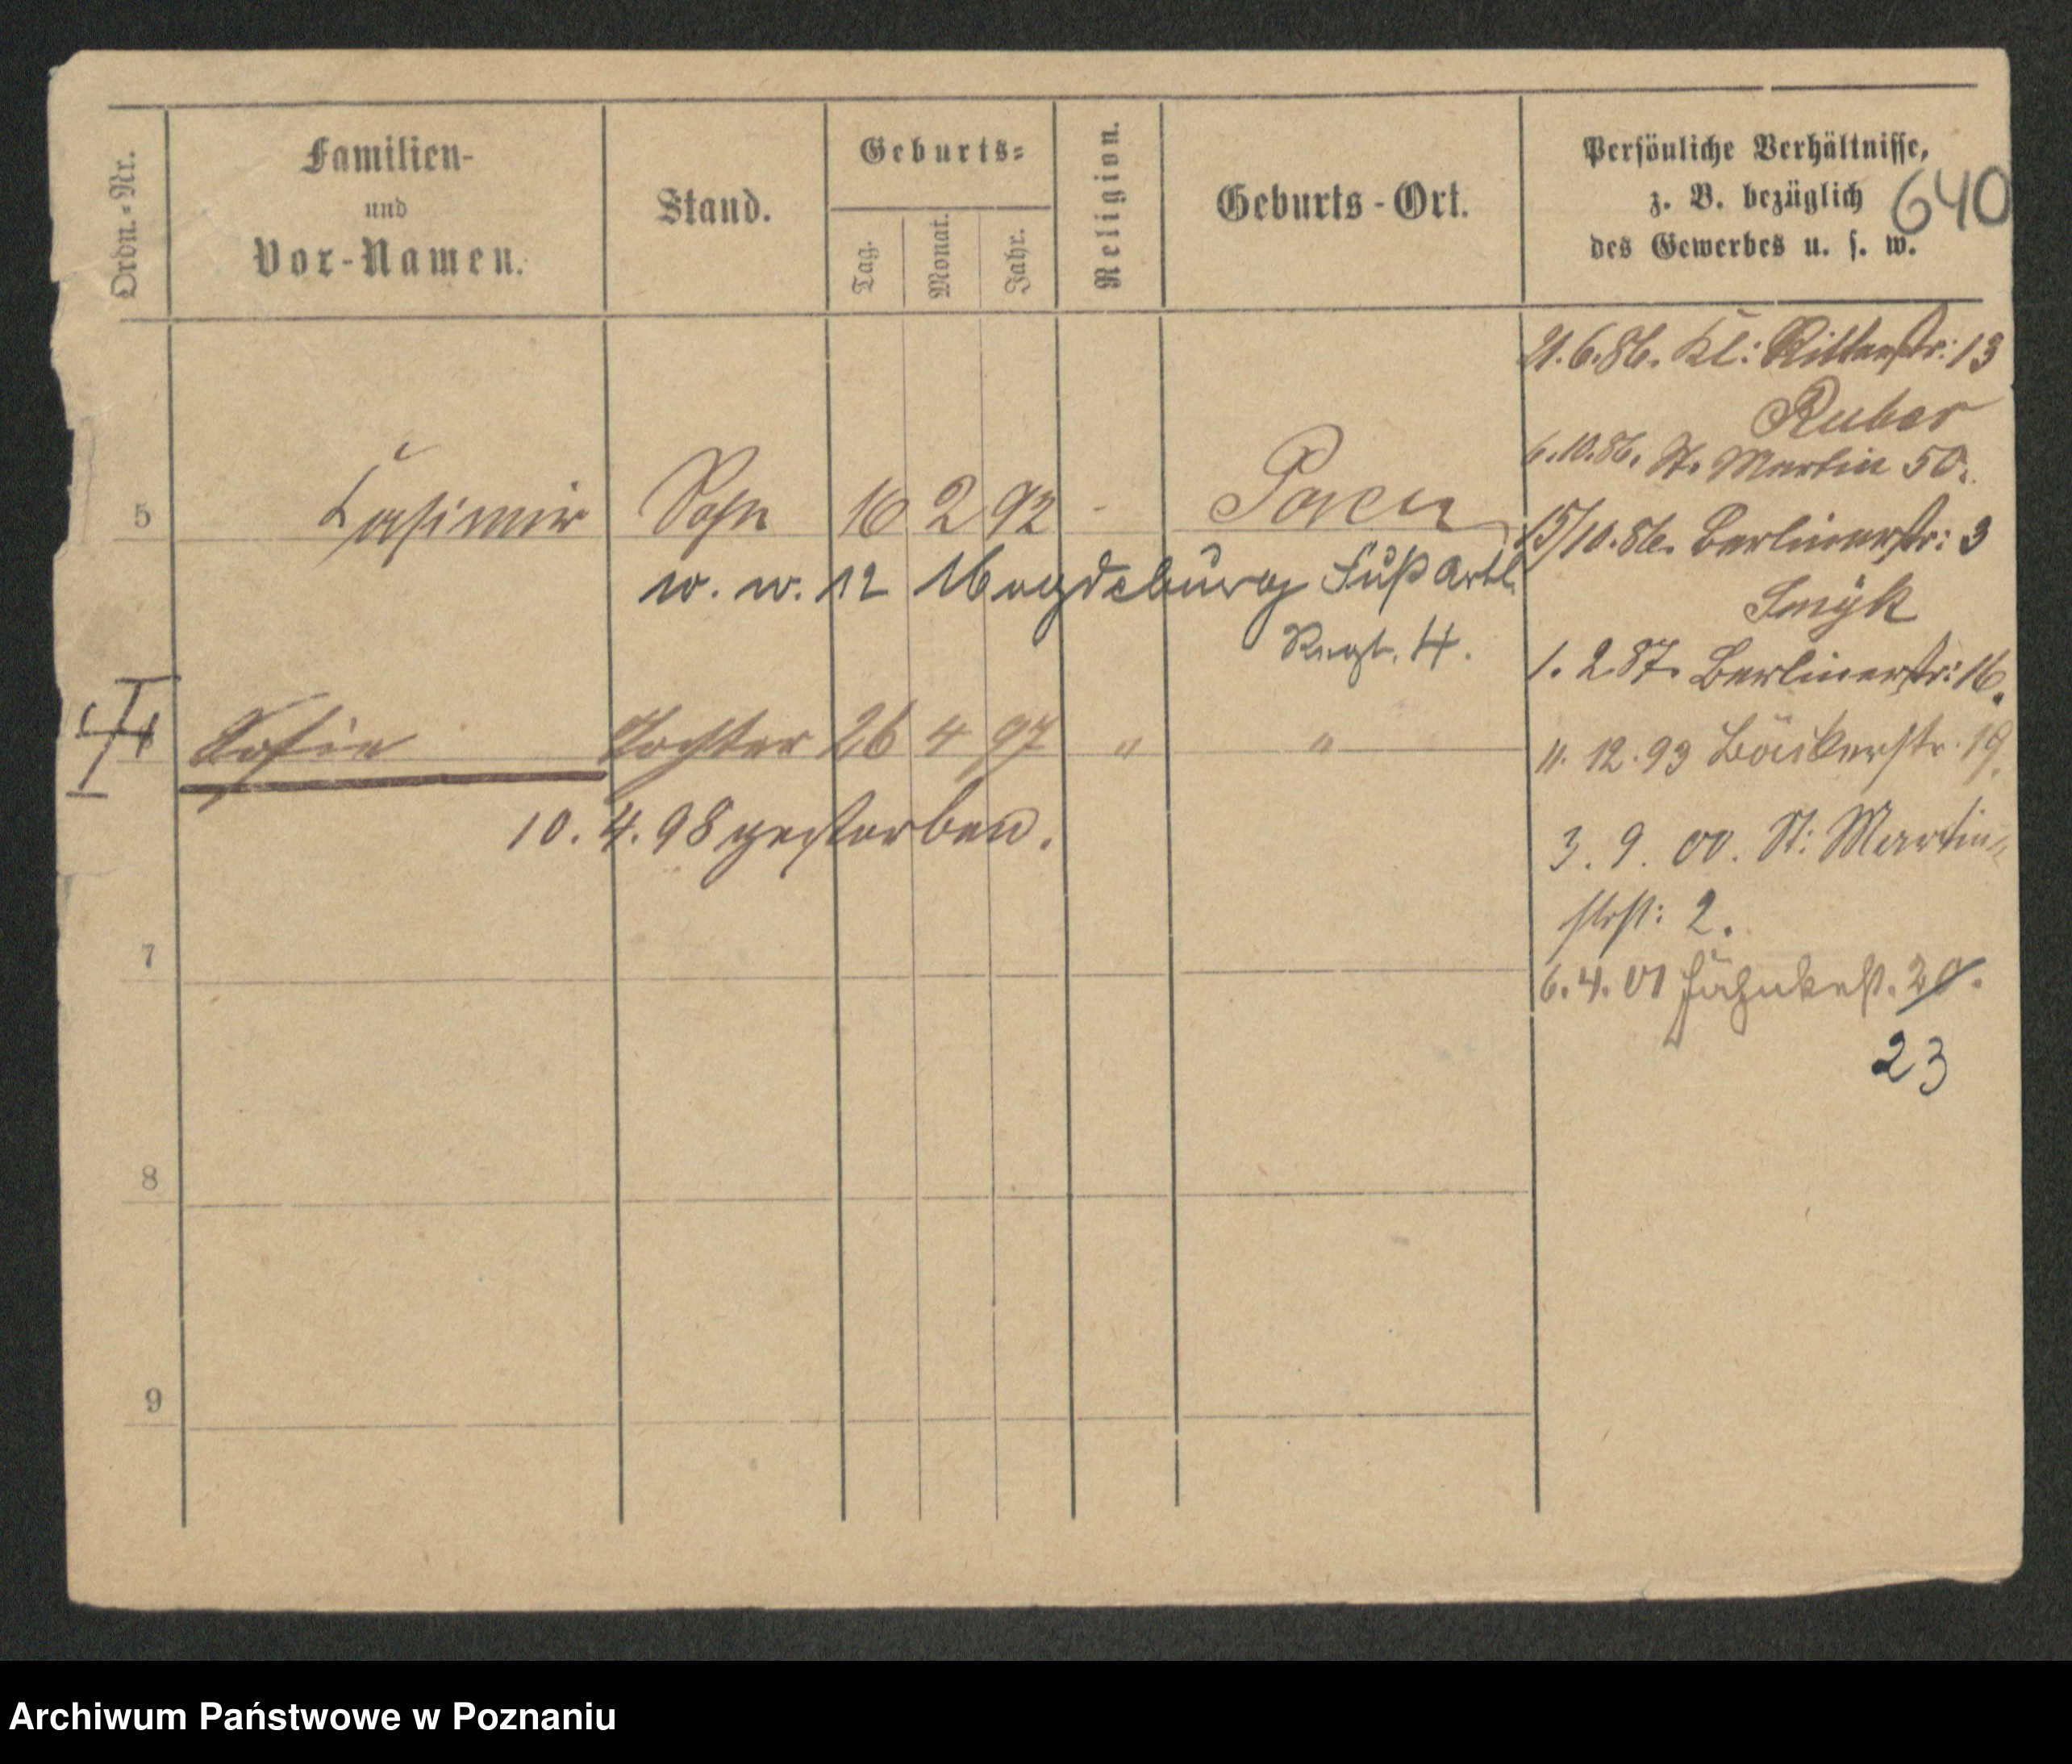 Ordn.-Nr.
Familien-
und
Vor-Namen.
Stand.
Geburts-
Tag.
Monat.
Jahr.
Religion.
Geburts-Ort.
Persönliche Verhältnisse,
z. B. bezüglich
des Gewerbes u. s. w.
640
5 Casimir Sohn 16 2 92 - Posen
w. w. 12 Magdeburg Fuß Artl.
Regt. 4.
Sofie Tochter 26 4 97 " "
10. 4. 98 gestorben.
7
8
9
21.6.86. Kl: Ritterstr: 13
Ruber
6.10.86. St. Martin 50.
15/10.86. Berlinerstr: 3
Smyk
1. 2. 87. Berlinerstr: 16.
11. 12. 93 Bäckerstr. 19.
3. 9. 00. St: Martin-
strß: 2.
6. 4. 01 20.
23
Archiwum Państwowe w Poznaniu